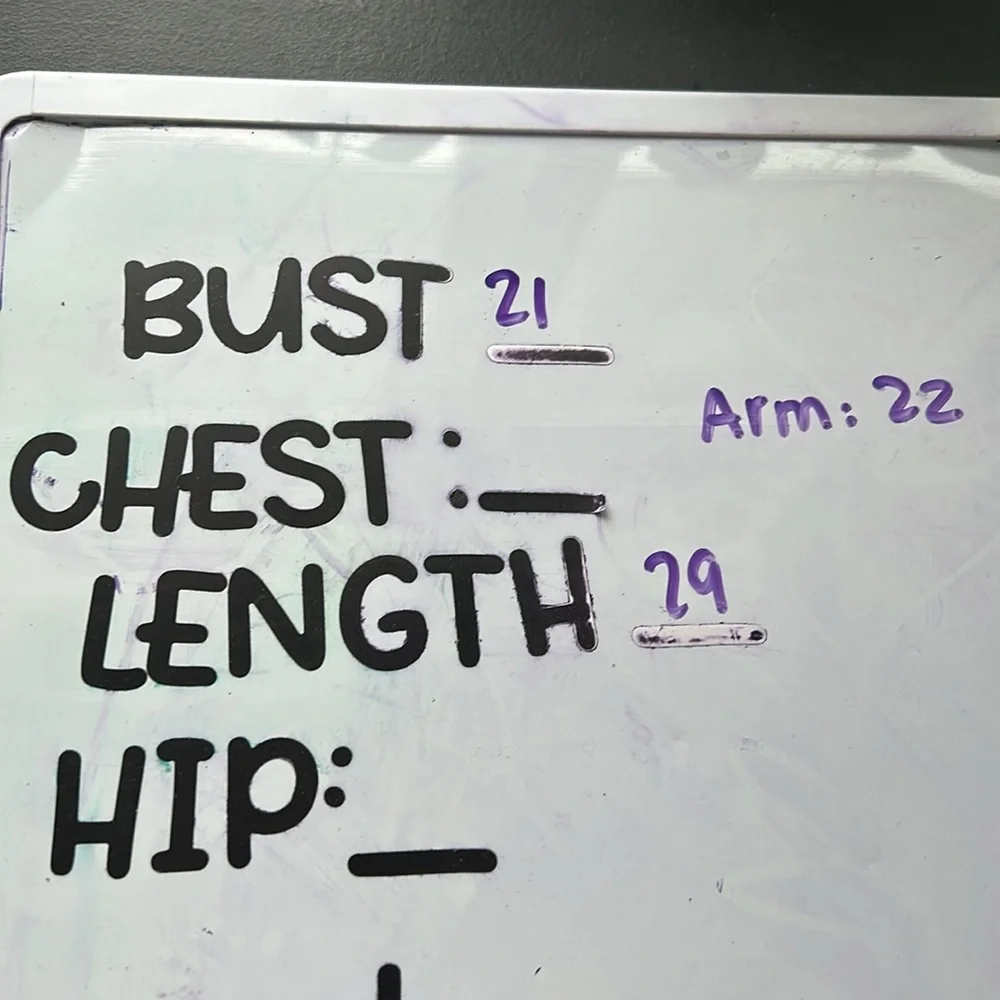 BUST 21
Arm: 22
CHEST :_
LENGTH 29
HIP:_